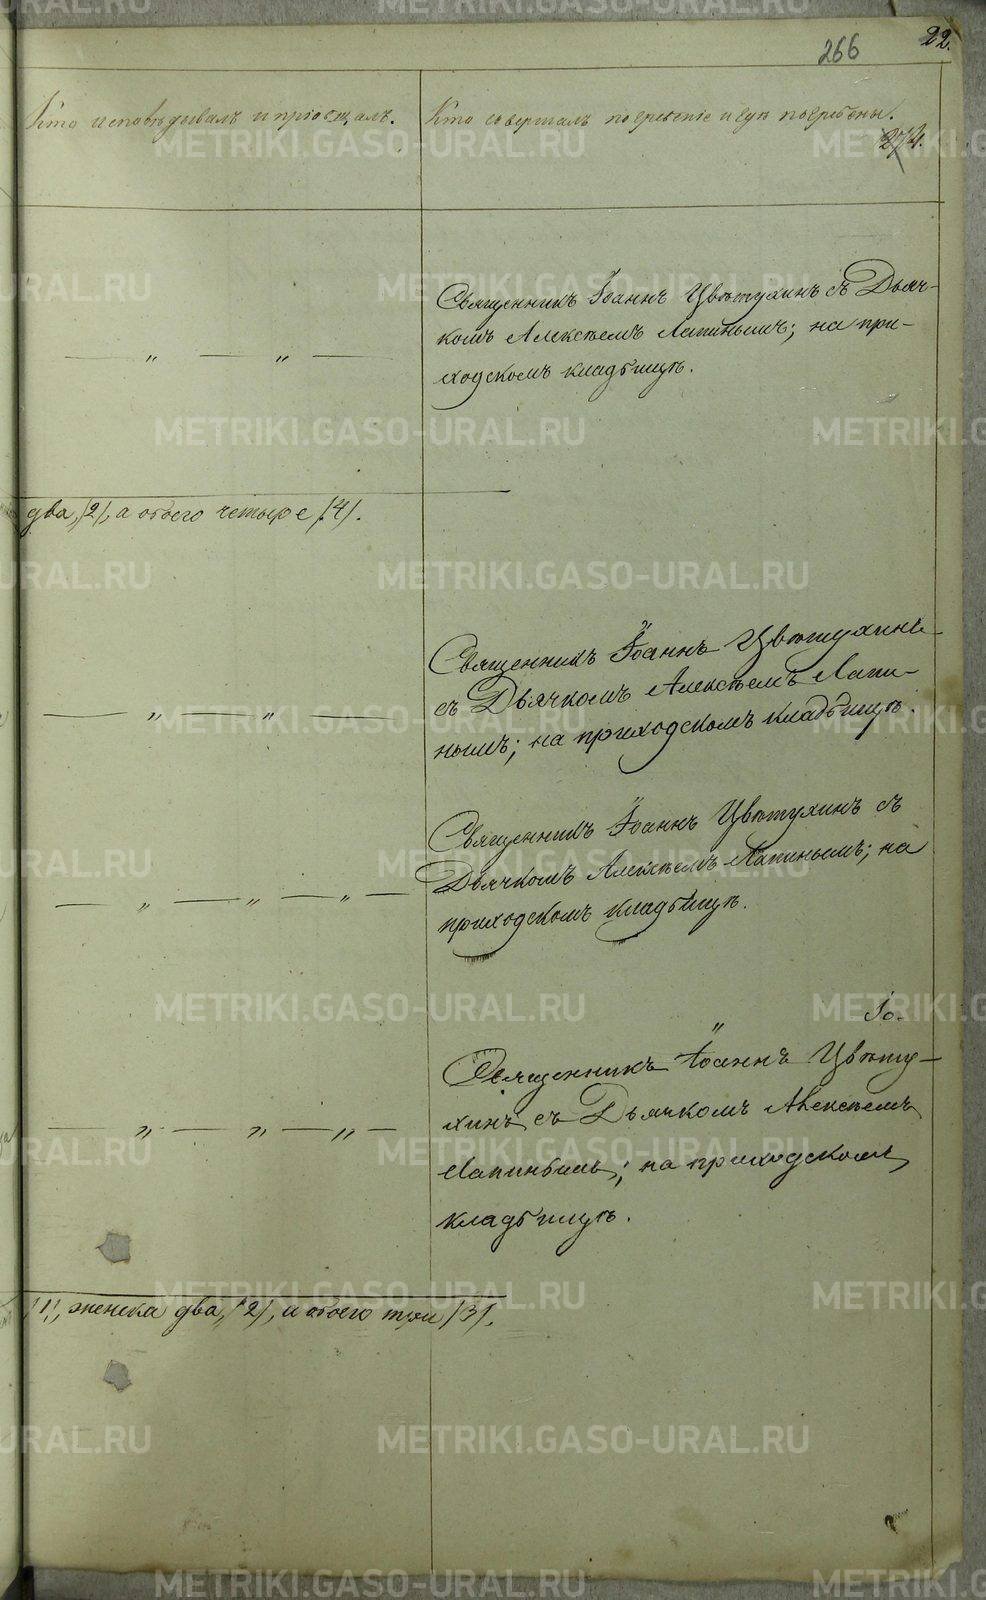 266
22.
Кто исповѣдывалъ и пріобщалъ.
Кто совершалъ погребеніе и гдѣ погребены.
274.
Священникъ Іоаннъ Цвѣтухинъ съ Дьяч-
комъ Алексѣемъ Лапинымъ; на при-
ходскомъ кладбищѣ.
— „ — „ —
два, /2/, а обоего четыре /4/.
Священникъ Іоаннъ Цвѣтухинъ
съ Дьячкомъ Алексѣемъ Лапи-
нымъ; на приходскомъ кладбищѣ.
— „ — „ —
Священникъ Іоаннъ Цвѣтухинъ съ
Дьячкомъ Алексѣемъ Лапинымъ; на
приходскомъ кладбищѣ.
— „ — „ — „ —
Іо-
Священникъ Іоаннъ Цвѣту-
хинъ, съ Дьячкомъ Алексѣемъ
Лапинымъ; на приходскомъ
кладбищѣ.
— „ — „ — „ —
/1/, женска два, /2/, а обоего три /3/.
METRIKI.GASO-URAL.RU